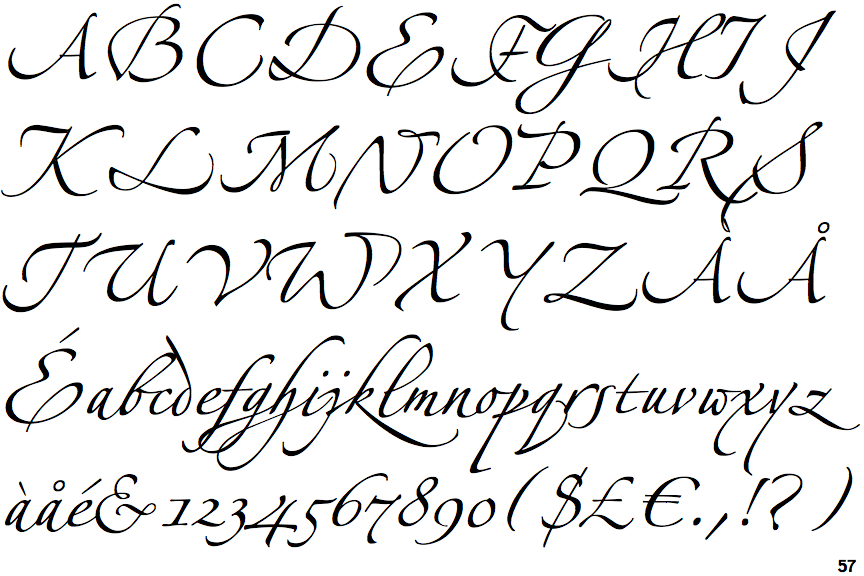 ABCDEFGHIJ
KLMNOPQRS
TUVWXYZÀÅ
Éabcdefghijklmnopqrstuvwxyz
àåé&1234567890($£€.,!?)
57